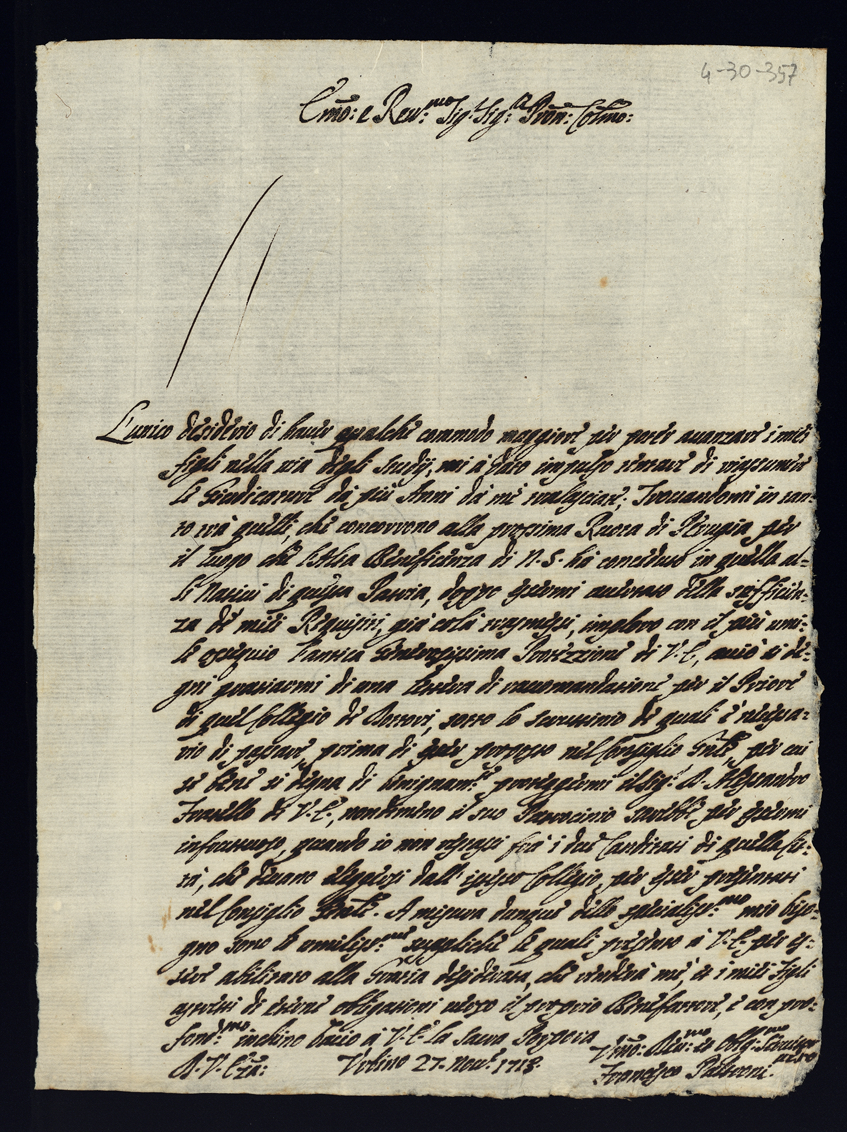 4-30-357
Em̃o: e Reu.mo Sig.r Sig.r e Pr̃on: Col.mo:
L'unico desiderio di hauer qualche commodo maggiore per poter auanzare i miei
figli nella uia degli studij, mi à dato impulso tentare di riassumer
le Giudicature da più Anni da me tralasciate; Trouandomi in tan-
to trà quelli, che concorrono alla prossima Ruota di Perugia per
il luogo che l'Alta Beneficenza di N. S. hà conceduto in quella al-
li Natiui di questa Patria, doppo essermi auuisato della sufficien-
za de miei Requisiti, già colà trasmessi, imploro con il più umi-
le ossequio l'antica Generosissima Protezzione di V. E., acciò si de-
gni graziarmi di una lettera di raccomandazione per il Priore
di quel Collegio de Dottori, sotto lo scrutinio de quali è necessa-
rio di passare, prima di esser proposto nel Consiglio Gen̄le, per cui
se bene si degna di benignam.te proteggermi il Sig.r D. Alessandro
Fratello di V. E., nondimeno il suo Patrocinio sarebbe per essermi
infruttuoso, quando io non restassi frà i due Candidati di quella Cit-
tà, che deuano eleggersi dall'istesso Collegio, per esser presentati
nel Consiglio Gen̄le. A misura dunque dello specialiss.mo mio biso-
gno sono le umiliss.me suppliche le quali presento à V. E. per es-
sere abilitato alla Grazia desiderata, che renderà me, et i miei Figli
astretti di eterne obligazioni uerso il proprio Benefattore, e con pro-
fond.mo inchino bacio à V. E. la Sacra Porpora
D. V. Em̃za: Vrbino 27. Nou.e 1718.
Vmo: Deu.mo et Obbg.mo Seruitor uero
Francesco Paltroni.